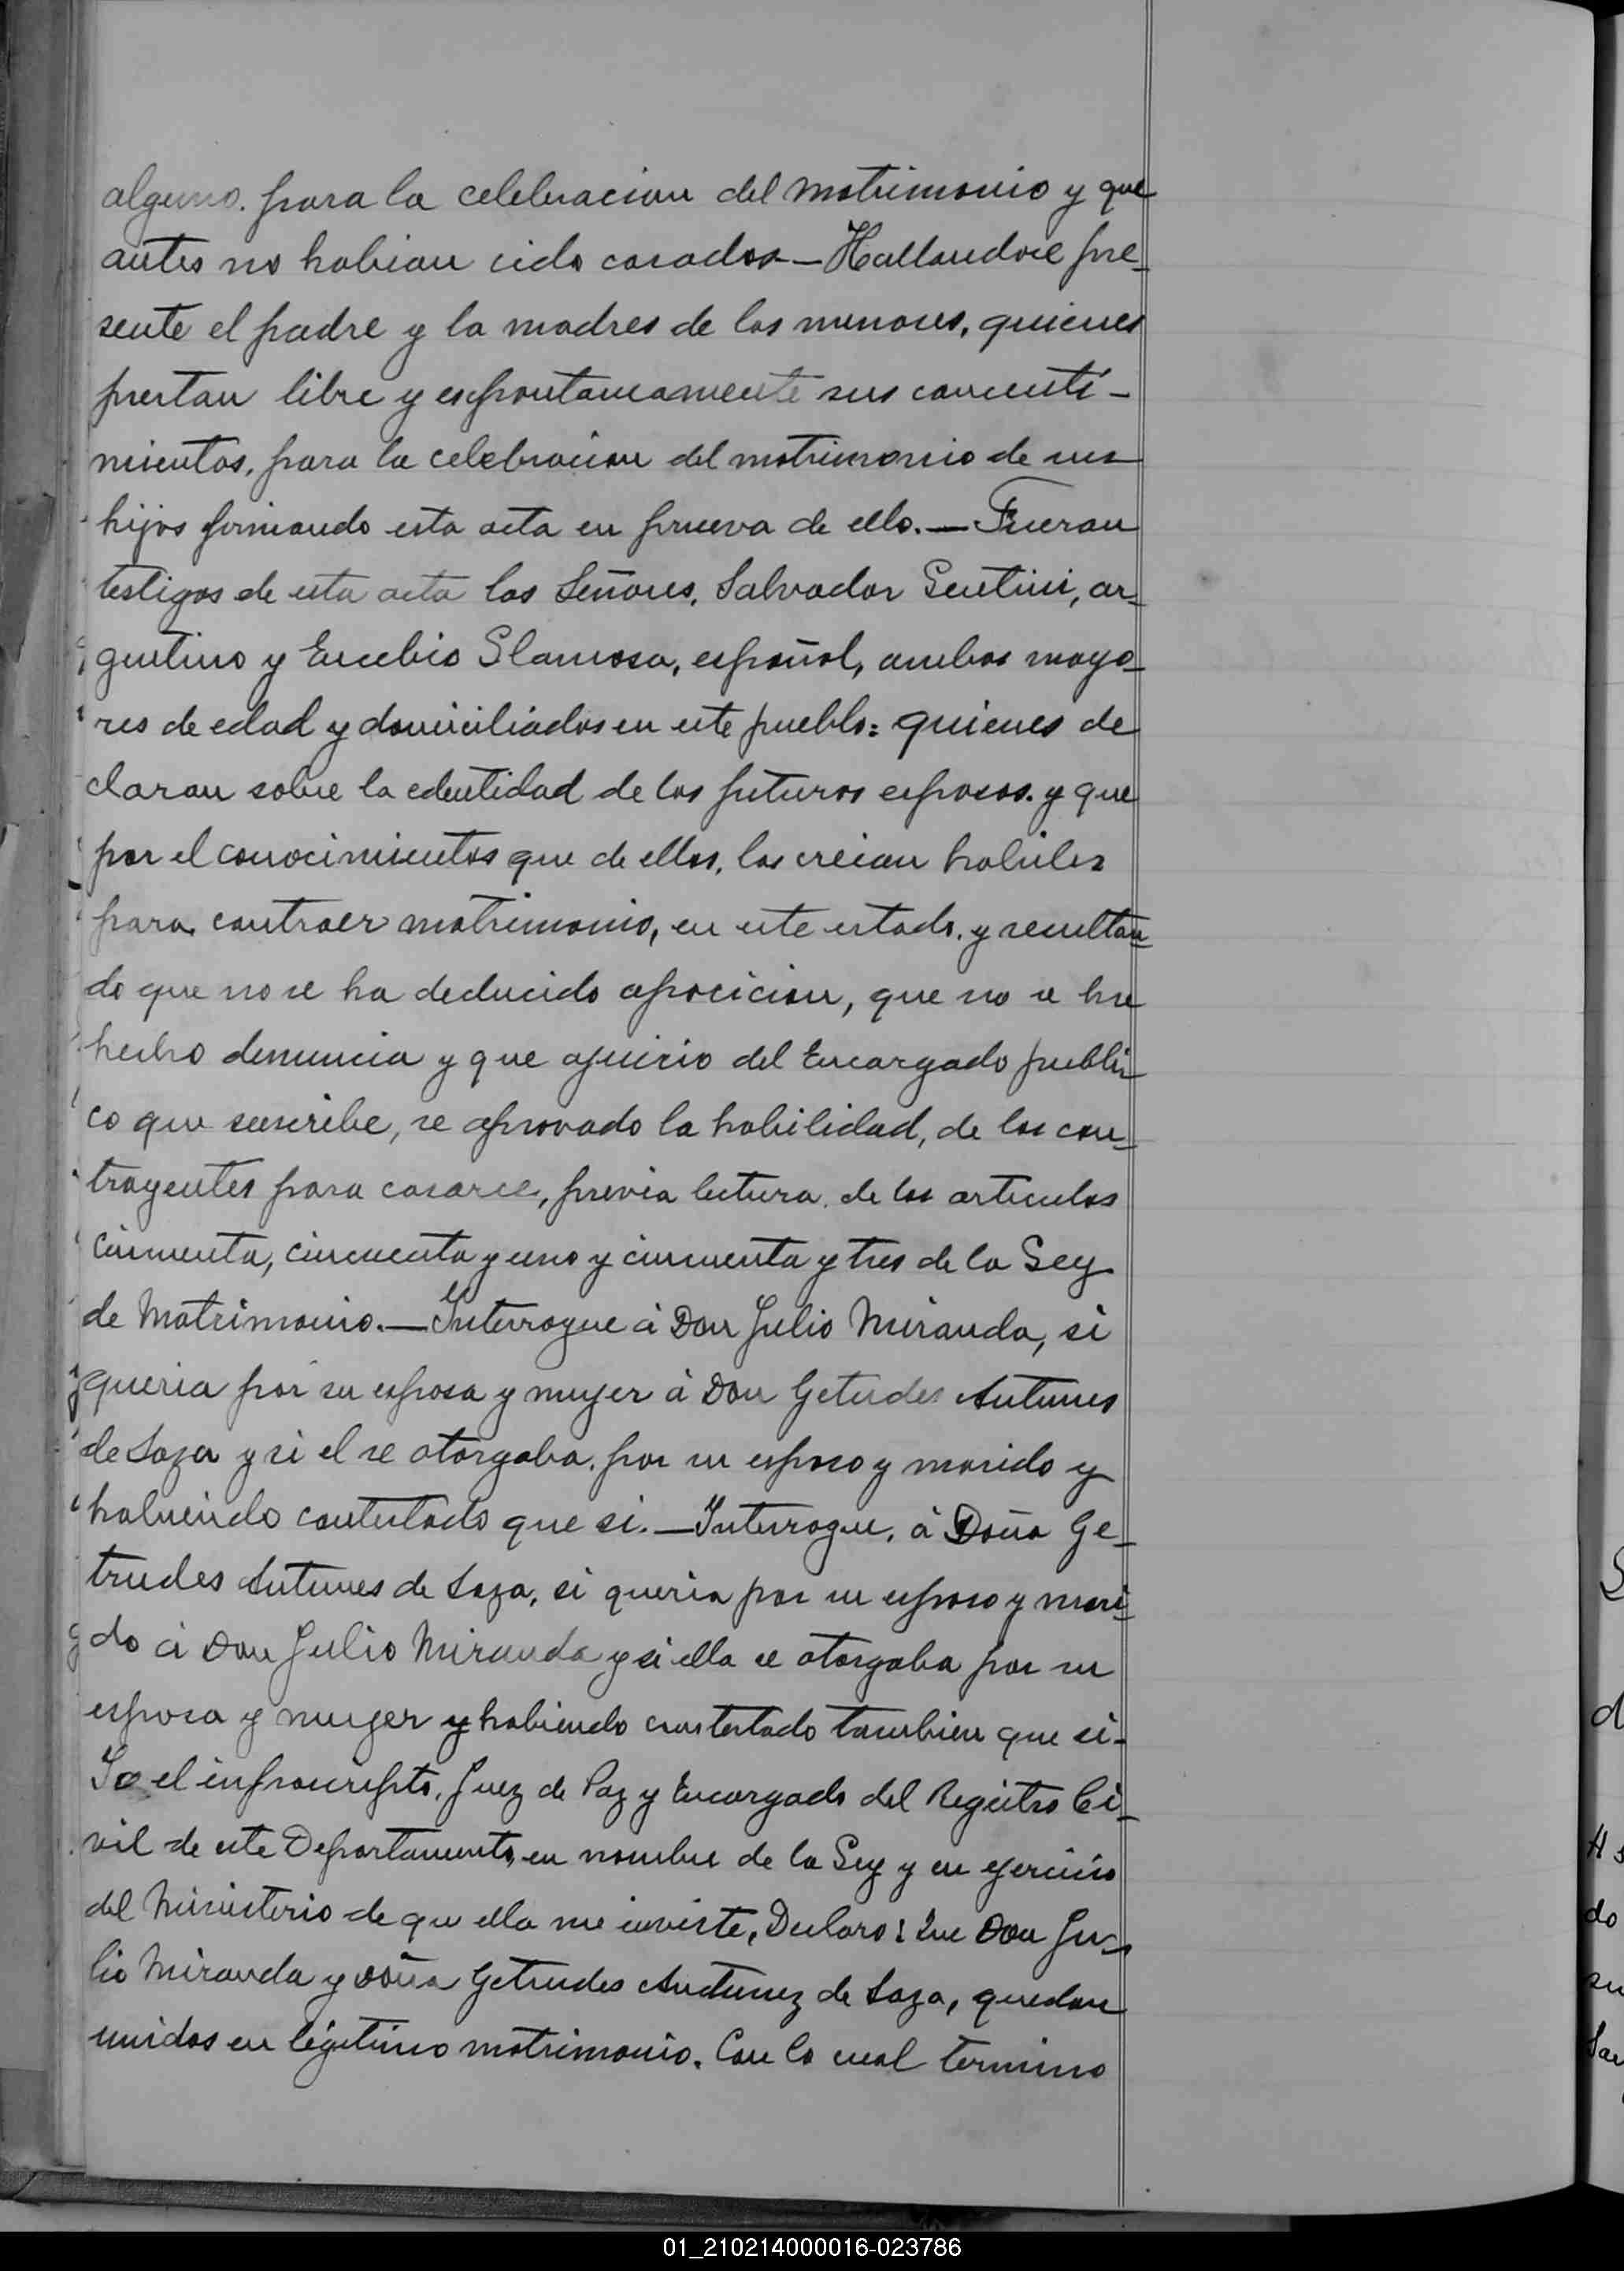 alguno. para la celebracion del matrimonio y que
antes no habian cido casados — Hallandose pre-
sente el padre y la madres de los menores, quienes
prestan libre y espontaneamente sus consenti-
mientos, para la celebracion del matrimonio de sus
hijos firmando esta acta en prueva de ello. — Fueron
testigos de esta acta los Señores, Salvador Gentini, ar-
gentino y Eucebio Llamosa, español, ambos mayo-
res de edad y domiciliados en este pueblo: quienes de
claran sobre la edentidad de los futuros esposos. y que
por el conocimientos que de ellos, los creian habiles
para contraer matrimonio, en este estado. y resultan
do que no se ha deducido oposicion, que no se ha
hecho denuncia y que ajuicio del Encargado publi-
co que suscribe, se aprovado la habilidad, de los con-
trayentes para casarce, previa lectura. de los articulos
cincuenta, cincuenta y uno y cincuenta y tres de la Ley
de Matrimonio. — Interrogue á Don Julio Miranda, si
queria por su esposa y mujer á Don Getudes Antunes
de Soza y si el se otorgaba. por su esposo y marido y
habiendo contestado que si. — Interrogue, á Doña Ge-
trudes Antunes de Soza, si queria por su esposo y mari-
do á Don Julio Miranda y si ella se otorgaba por su
esposa y mujer y habiendo contestado tambien que si-
Yo el infrascripto, Juez de Paz y Encargado del Registro Ci-
vil de este Departamento, en nombre de la Ley y en ejercicio
del Ministerio de que ella me inviste, Declaro: Que Don Ju-
lio Miranda y Doña Getrudes Antunez de Soza, quedan
unidos en legitimo matrimonio. Con lo cual termino
01_210214000016-023786